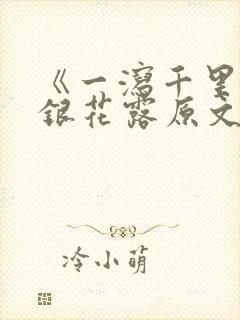 《一瀉千里
銀花露原文
冷小萌